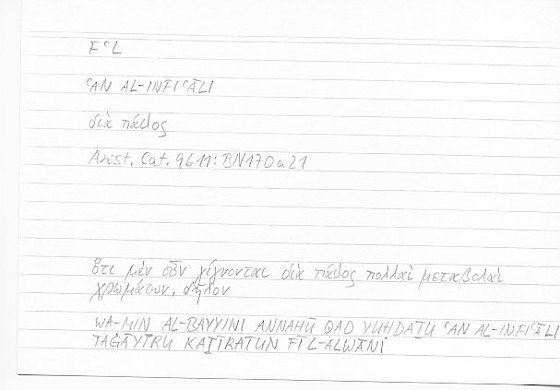 FʿL
ʿAN AL-INFIʿĀLI
διὰ πάθος
Arist. Cat. 9b11: BN170a21
ὅτι μὲν οὖν γίγνονται διὰ πάθος πολλαὶ μεταβολαὶ
χρωμάτων, δῆλον
WA-MIN AL-BAYYINI ANNAHŪ QAD YUḤDAṮU ʿAN AL-INFIʿĀLI
TAĠĀYĪRU KAṮĪRATUN FĪ L-ALWĀNI